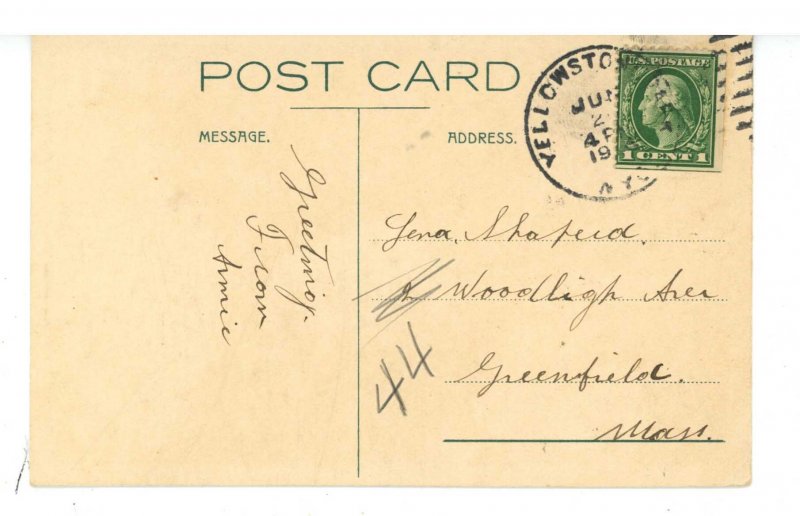 POST CARD
MESSAGE.
ADDRESS.
YELLOWSTO
JUN
2
4 P
19
WYO
U.S. POSTAGE
1 CENT 1
Greeting.
From
Annie
Lena Shapeid.
Woodligh Aver
44
Greenfield.
Mass.